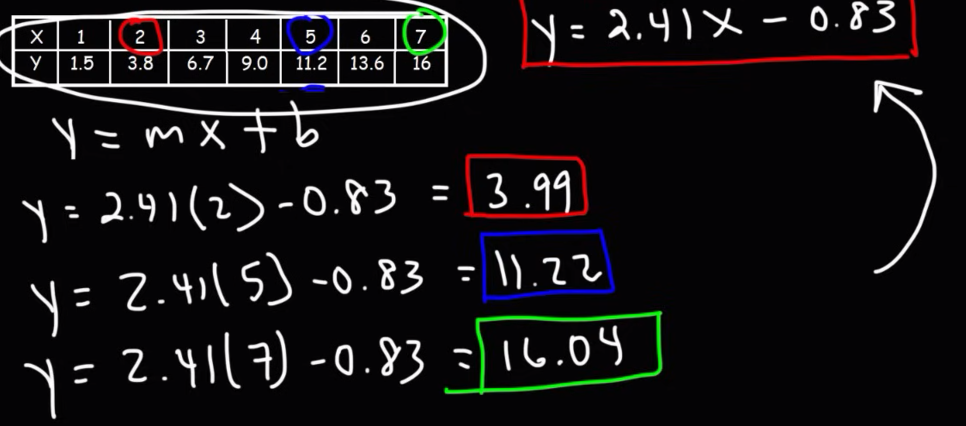 X 1 2 3 4 5 6 7
Y 1.5 3.8 6.7 9.0 11.2 13.6 16
y = 2.41x - 0.83
y = mx + b
y = 2.41(2) - 0.83 = 3.99
y = 2.41(5) - 0.83 = 11.22
y = 2.41(7) - 0.83 = 16.04